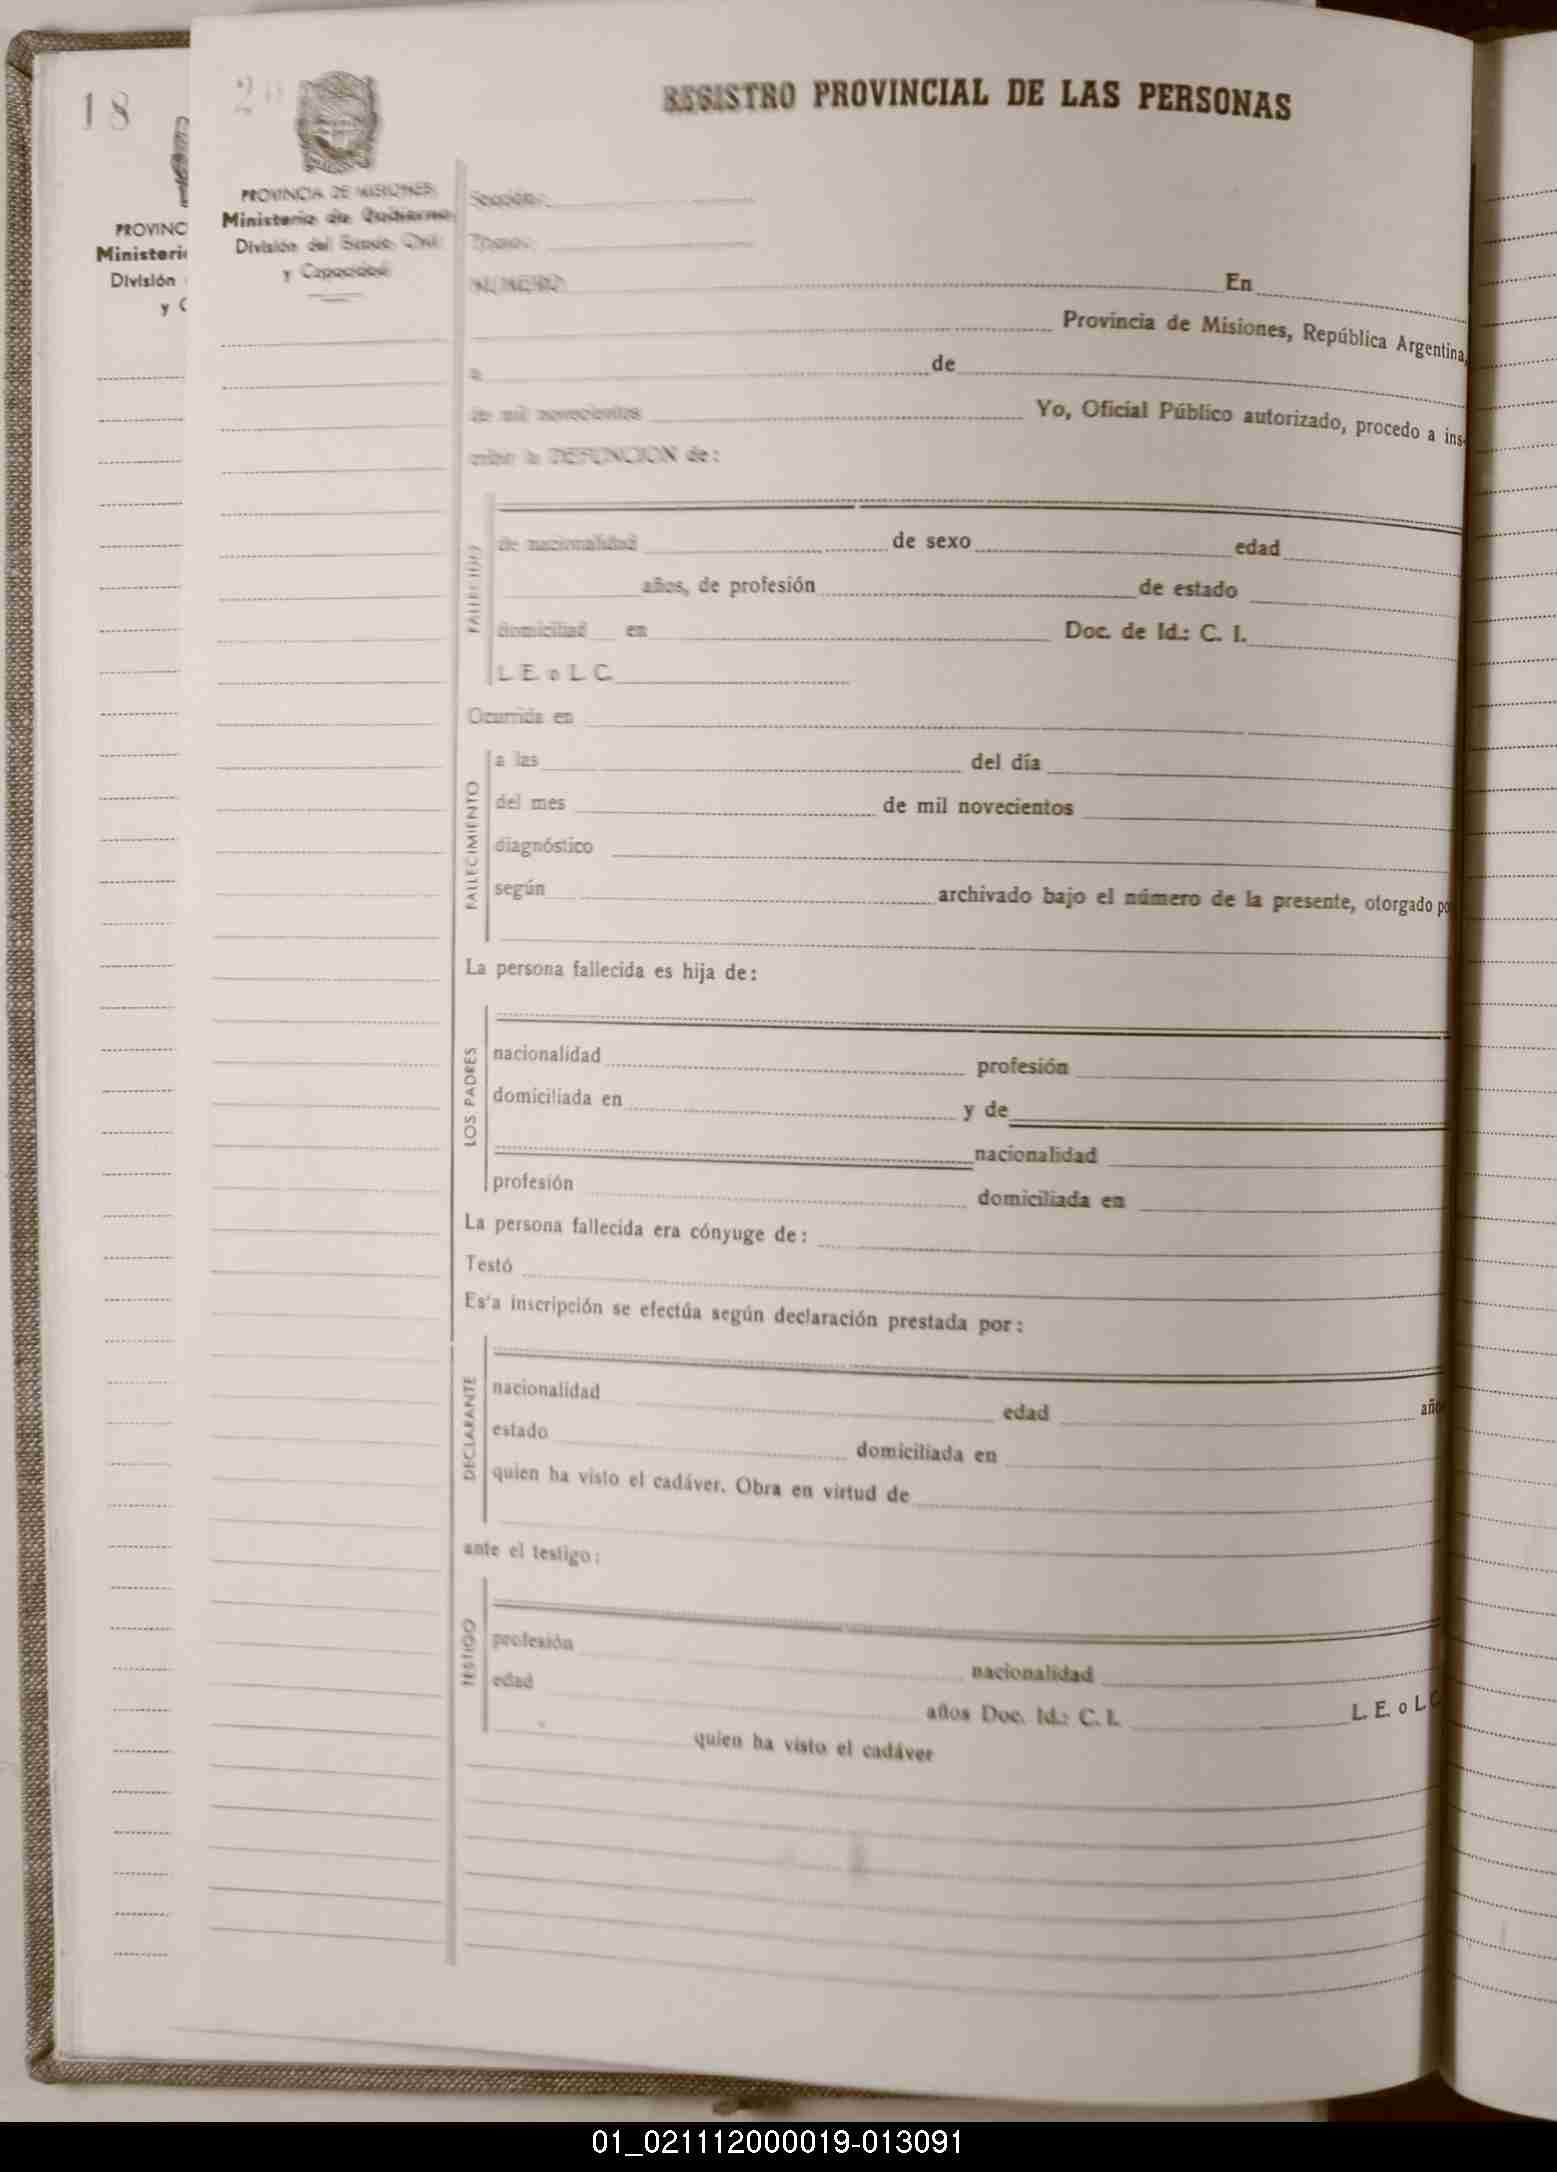 18
20
PROVINC
Ministeri
División
y C
PROVINCIA DE MISIONES
Ministerio de Gobierno
División del Estado Civil
y Capacidad
REGISTRO PROVINCIAL DE LAS PERSONAS
Sección:
Tomo:
NUMERO En
Provincia de Misiones, República Argentina,
a de
de mil novecientos Yo, Oficial Público autorizado, procedo a ins-
cribir la DEFUNCION de:
FALLECIDO
de nacionalidad de sexo edad
años, de profesión de estado
domiciliad en Doc. de Id.: C. I.
L. E. o L. C.
Ocurrida en
FALLECIMIENTO
a las del día
del mes de mil novecientos
diagnóstico
según archivado bajo el número de la presente, otorgado po
La persona fallecida es hija de:
LOS PADRES
nacionalidad profesión
domiciliada en y de
nacionalidad
profesión domiciliada en
La persona fallecida era cónyuge de:
Testó
Es'a inscripción se efectúa según declaración prestada por:
DECLARANTE
nacionalidad edad año
estado domiciliada en
quien ha visto el cadáver. Obra en virtud de
ante el testigo:
TESTIGO
profesión nacionalidad
edad años Doc. Id.: C. I. L. E. o L C
quien ha visto el cadáver
01_021112000019-013091